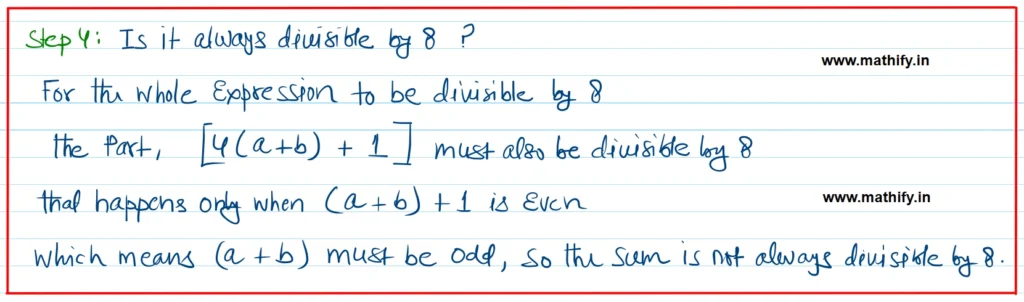 Step 4: Is it always divisible by 8 ?
www.mathify.in
For the whole Expression to be divisible by 8
the Part, [4(a+b) + 1] must also be divisible by 8
that happens only when (a+b)+1 is Even
www.mathify.in
which means (a+b) must be odd, so the sum is not always divisible by 8.